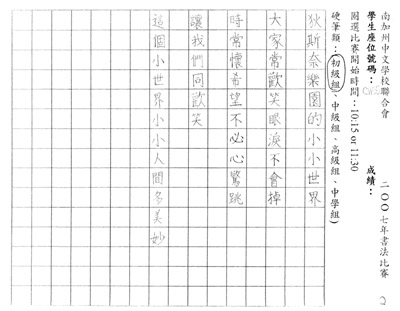 南加州中文學校聯合會 二○○七年書法比賽
學生座位號碼： 成績：
圈選比賽開始時間：10:15 or 11:30
硬筆類：(初級組、中級組、高級組、中學組)
狄斯奈樂園的小小世界
大家常歡笑眼淚不會掉
時常懷希望不必心驚跳
讓我們同欢笑
這個小世界小小人間多美妙